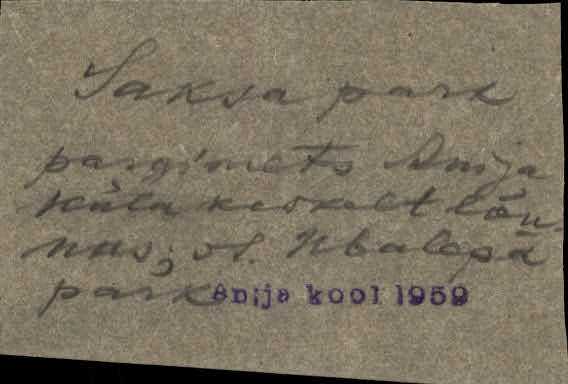 Saksa park
pargimets Anija
küla keskelt lõu-
nas; vt. Ubalepa
park Anija kool 1959